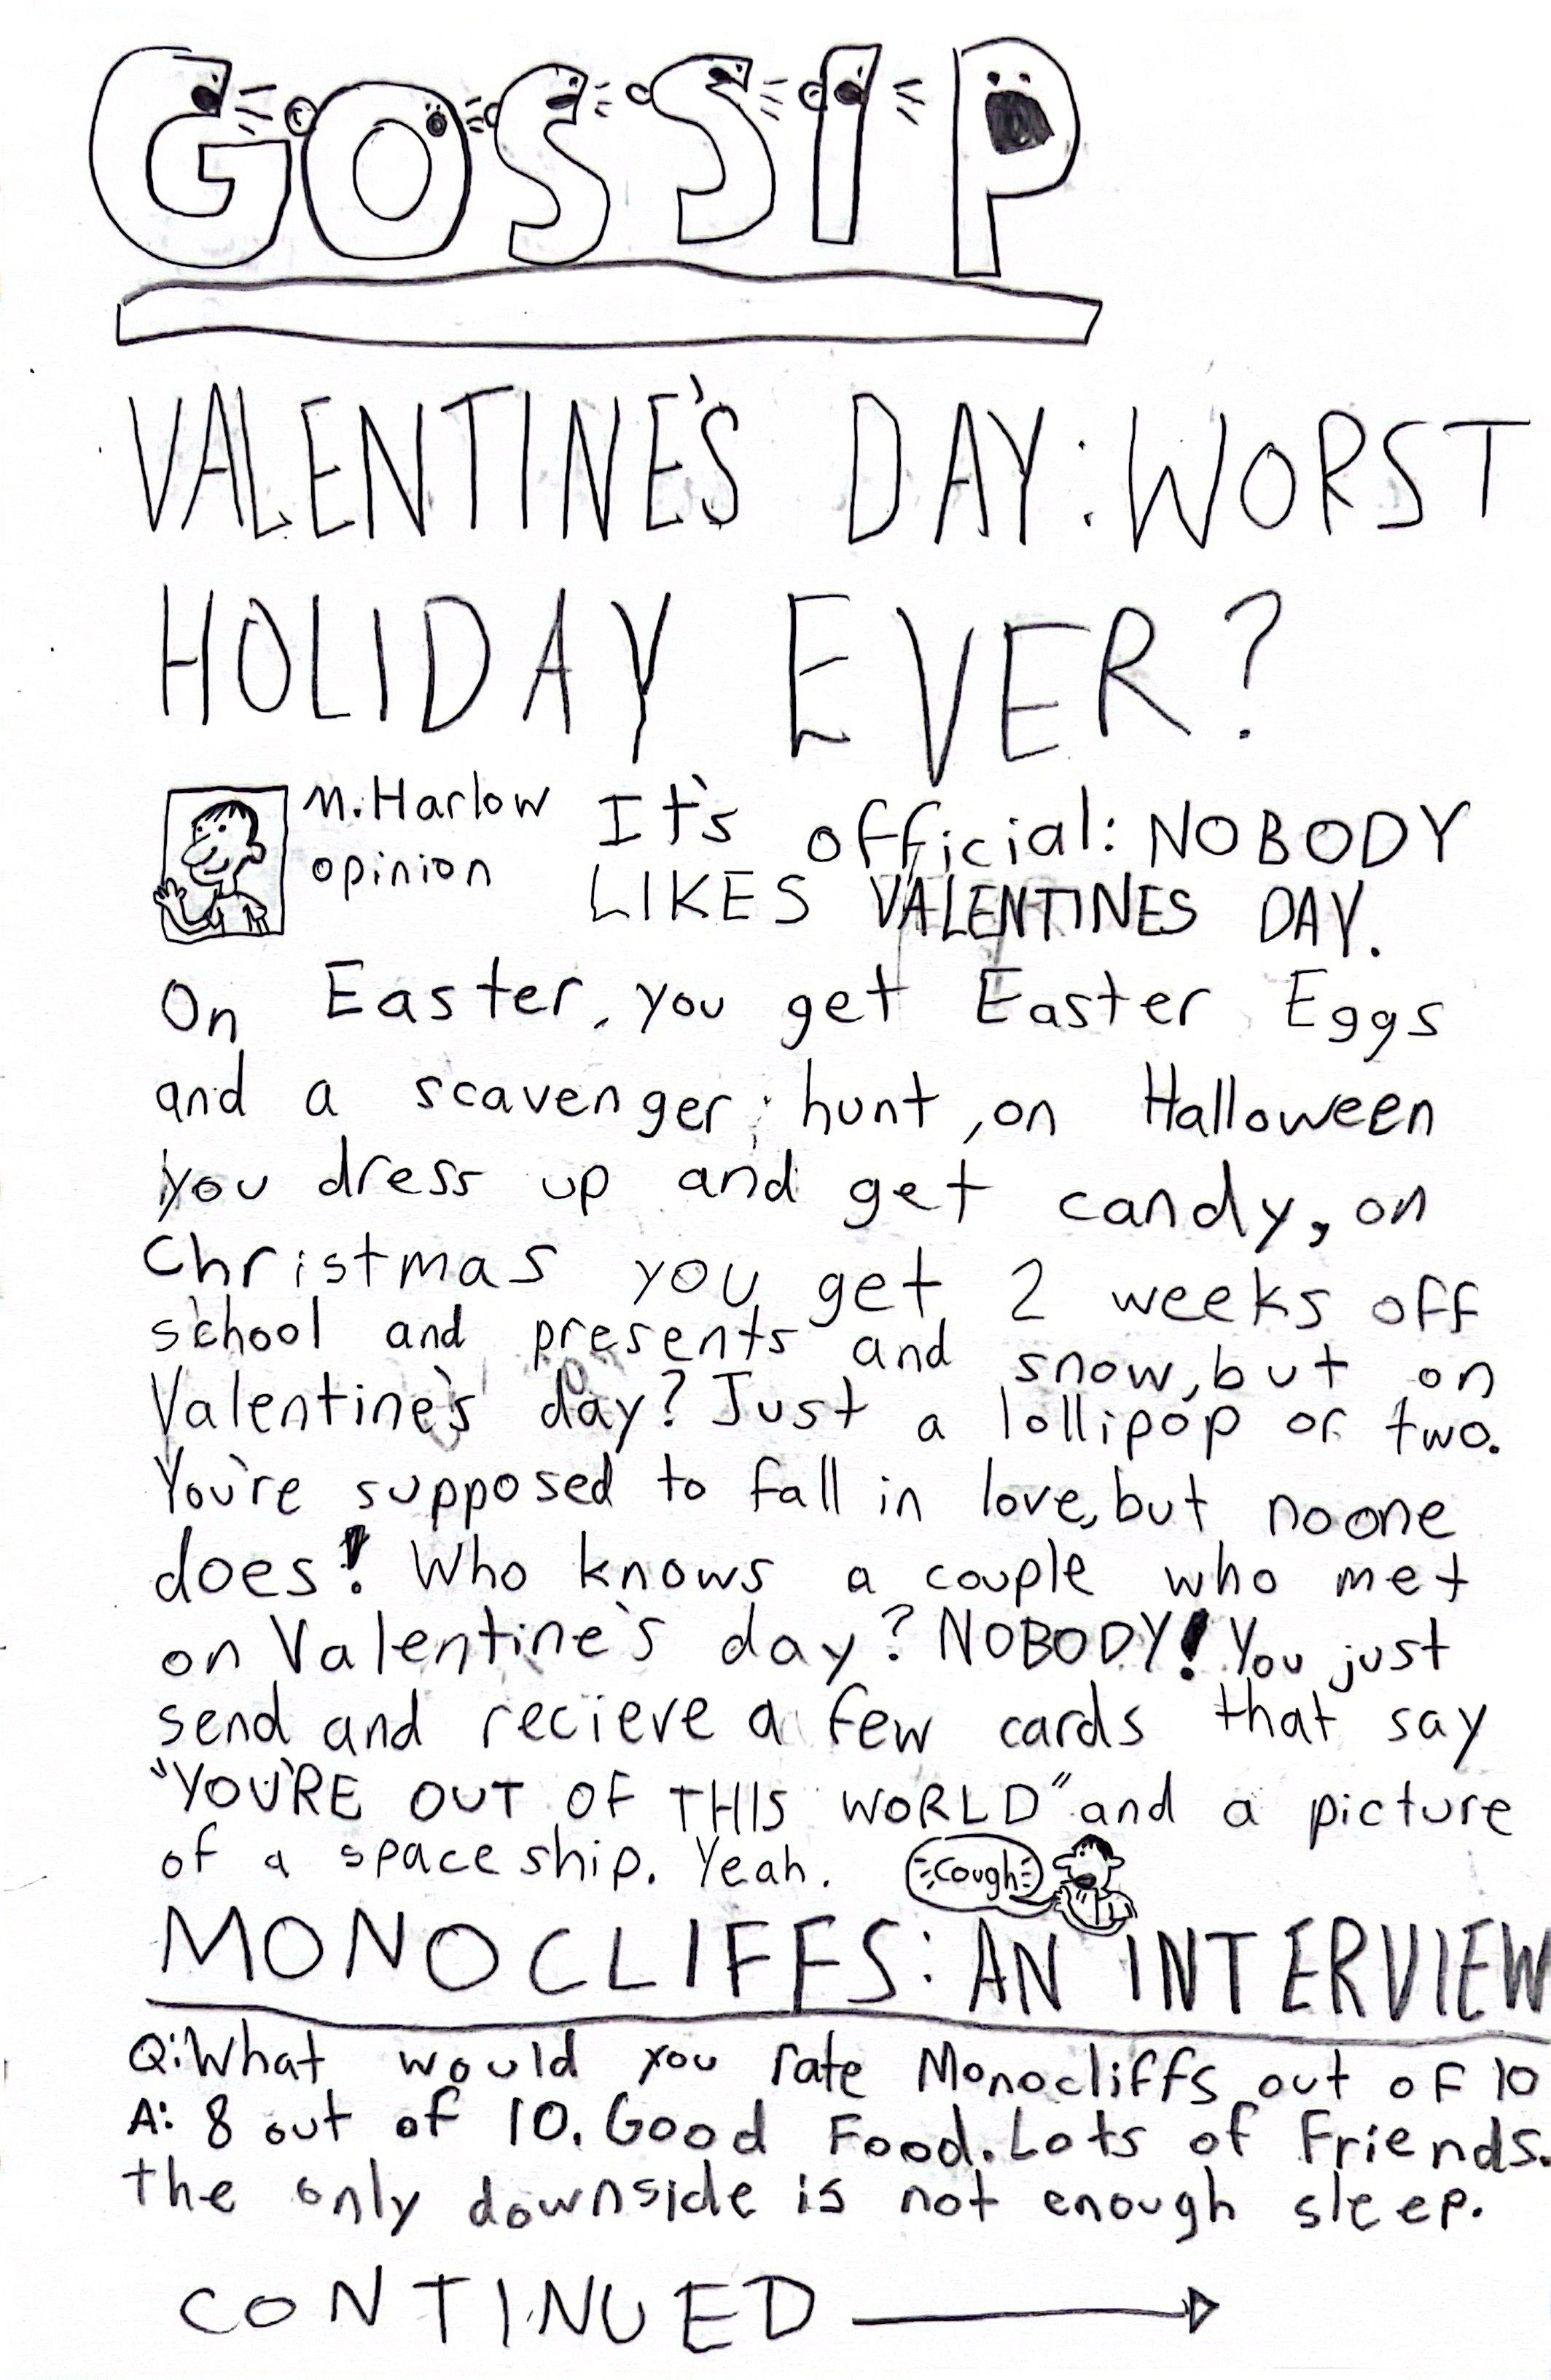 GOSSIP
VALENTINE'S DAY: WORST
HOLIDAY EVER?
M. Harlow
opinion
It's official: NOBODY
LIKES VALENTINES DAY.
On Easter, you get Easter Eggs
and a scavenger hunt, on Halloween
you dress up and get candy, on
Christmas you get 2 weeks off
school and presents and snow, but on
Valentine's day? Just a lollipop or two.
You're supposed to fall in love, but noone
does! Who knows a couple who met
on Valentine's day? NOBODY! You just
send and recieve a few cards that say
"YOU'RE OUT OF THIS WORLD" and a picture
of a space ship. Yeah.
Cough
MONOCLIFFS: AN INTERVIEW
Q: What would you rate Monocliffs out of 10
A: 8 out of 10. Good Food. Lots of Friends.
the only downside is not enough sleep.
CONTINUED